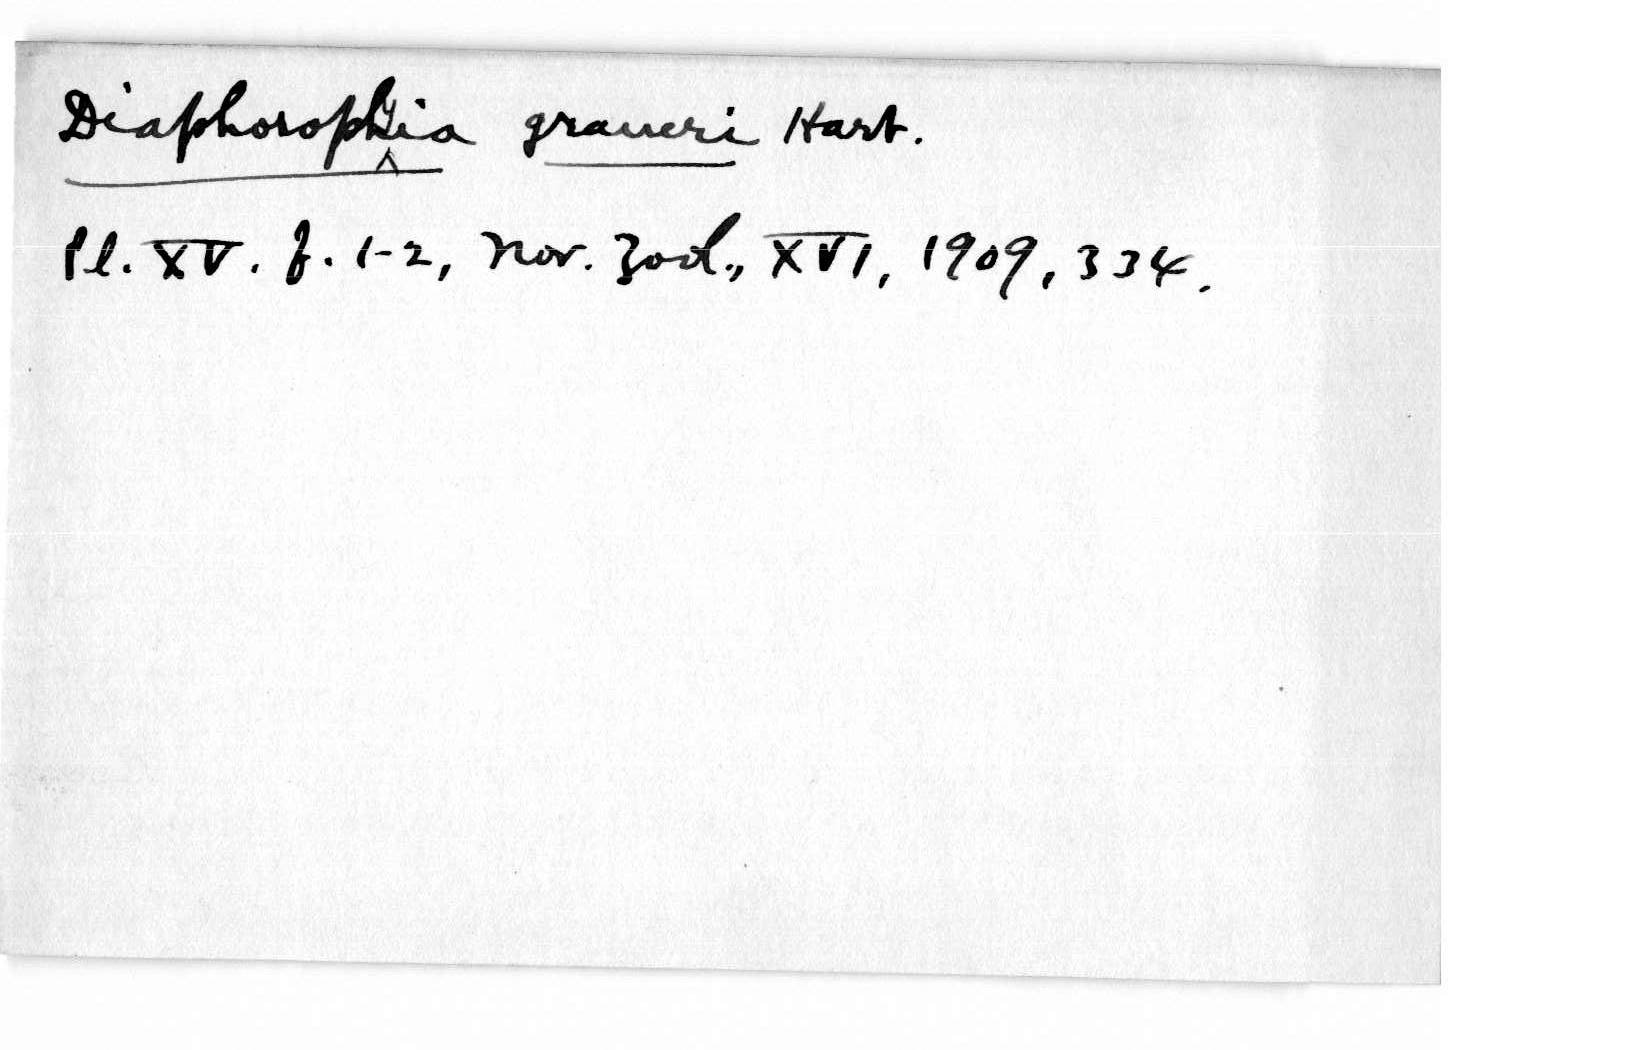 Diaphorophyia graueri Hart.
Pl. XV. f. 1-2, Nov. Zool., XVI, 1909, 334.